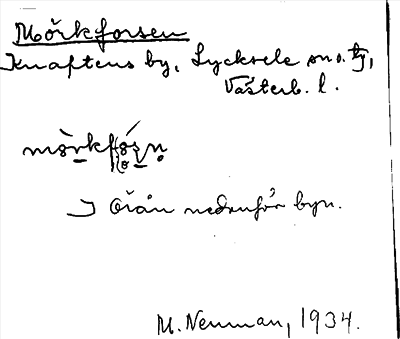 Mörkforsen
Knaftens by, Lycksele sn o. tg,
Västerb. l.
I Örån nedanför byn.
M. Neuman, 1934.